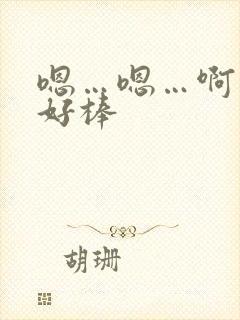 嗯…嗯…啊
好棒
胡珊